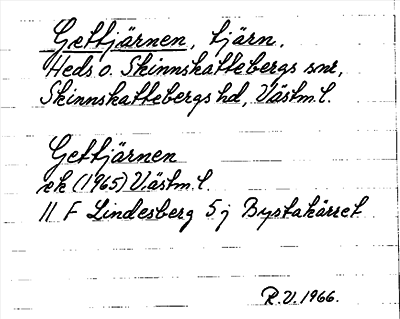 Gettjärnen, tjärn.
Heds o. Skinnskattebergs snr,
Skinnskattebergs hd, Västm. l.
Gettjärnen
ek (1965) Västm. l.
11 F Lindesberg 5 j Bystakärret
R.V. 1966.